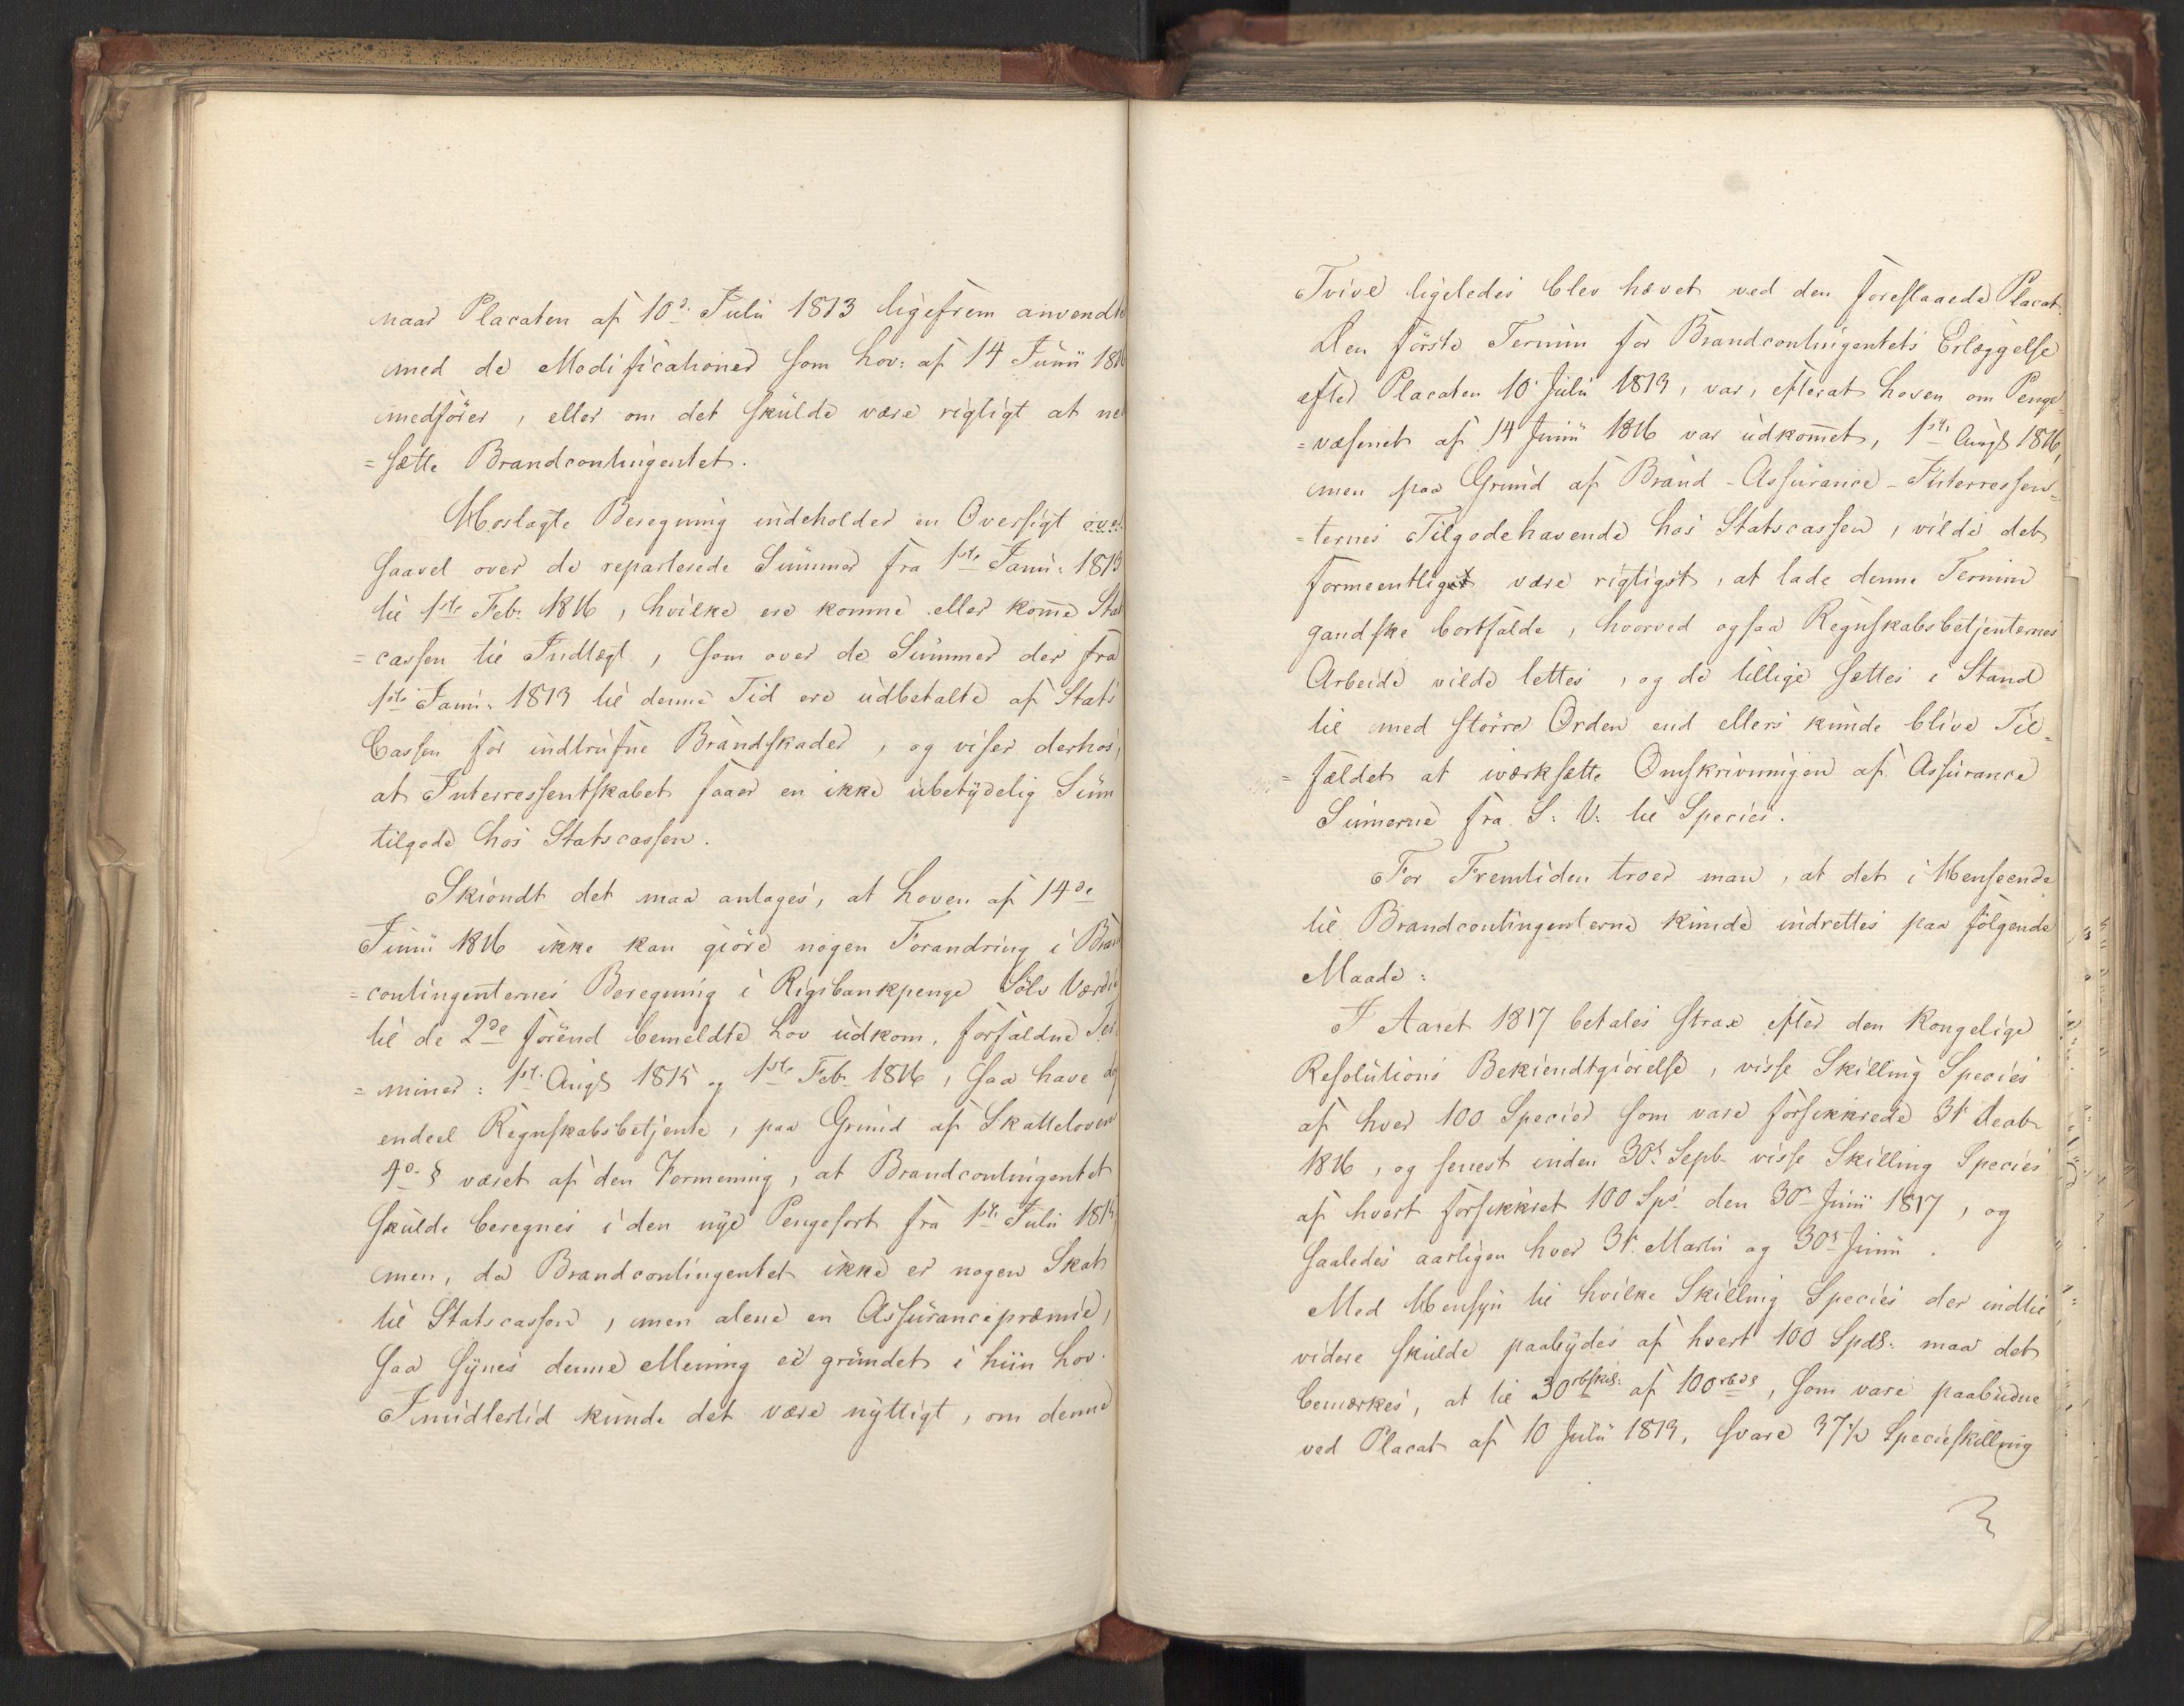 naar Placaten af 10d. Julii 1813 ligefrem anvendte
med de Modificationer som Lov: af 14 Junii 1816
medfører, eller om det skulde være rigtigt at ned
=sætte Brandcontingentet.
Hoslagte Beregning indeholder en Oversigt over
saavel over de reparterede Summer fra 1ste Janu: 1813
til 1ste Feb: 1816, hvilke ere komne eller kome Stats
=cassen til Indtægt, som over de Summer der fra
1ste Janu: 1813 til denne Tid ere udbetalte af Stats
Cassen for indtrufne Brandskader, og viser derhos,
at Interressentskabet faaer en ikke ubetydelig Sum
tilgode hos Statscassen.
Skiøndt det maa antages, at Loven af 14de
Junii 1816 ikke kan giøre nogen Forandring i Brand
=contingenternes Beregning i Rigsbankpenge Sölv Værdie
til de 2de förend bemeldte Lov udkom, forfaldne Ter-
=miner: 1st. Augs 1815 og 1ste Feb: 1816, saa have dog
endeel Regnskabsbetjente, paa Grund af Skatteloven
4de § været af den Formening, at Brandcontingentet
skulde beregnes i den nye Pengesort fra 1ste Julii 1815,
men, da Brandcontingentet ikke er nogen Skat
til Statscassen, men alene en Assurancepræmie,
saa synes denne Mening ei grundet i hiin Lov.
Imidlertid kunde det være nyttigt, om denne
Tvivl ligeledes blev hævet ved den foreslaaede Placat.
Den förste Termin for Brandcontingentets Erlæggelse
efter Placaten 10 Julii 1813, var, efterat Loven om Penge
=væsenet af 14 Junii 1816 var udkomet, 1ste Augs 1816,
men paa Grund af Brand-Assurance-Interressen-
=ternes Tilgodehavende hos Statscassen, vilde det
formeentligst være rigtigst, at lade denne Termin
gandske bortfalde, hvorved ogsaa Regnskabsbetjenternes
Arbeide vilde lettes, og de tillige sættes i Stand
til med större Orden end ellers kunde blive Til-
=fældet at iværksætte Omskrivningen af Assurance
Sumerne fra S: V: til Species.
For Fremtiden troer man, at det i Henseende
til Brandcontingenterne kunde indrettes paa fölgende
Maade:
I Aaret 1817 betales strax efter den Kongelige
Resolutions Bekiendtgiörelse, visse Skilling Species
af hver 100 Species som vare forsikkrede 31 Decbr
1816, og senest inden 30t Septb. visse Skilling Species
af hvert forsikkret 100 Sps den 30t Junii 1817, og
saaledes aarligen hver 31t Martii og 30t Junii.
Med Hensyn til hvilke Skilling Species der indtil
videre skulde paabydes af hvert 100 Spds. maa det
bemærkes, at til 30 rbskis. af 100 rbds, som vare paabudne
ved Placat af 10 Julii 1813, svare 37½ Specieskilling